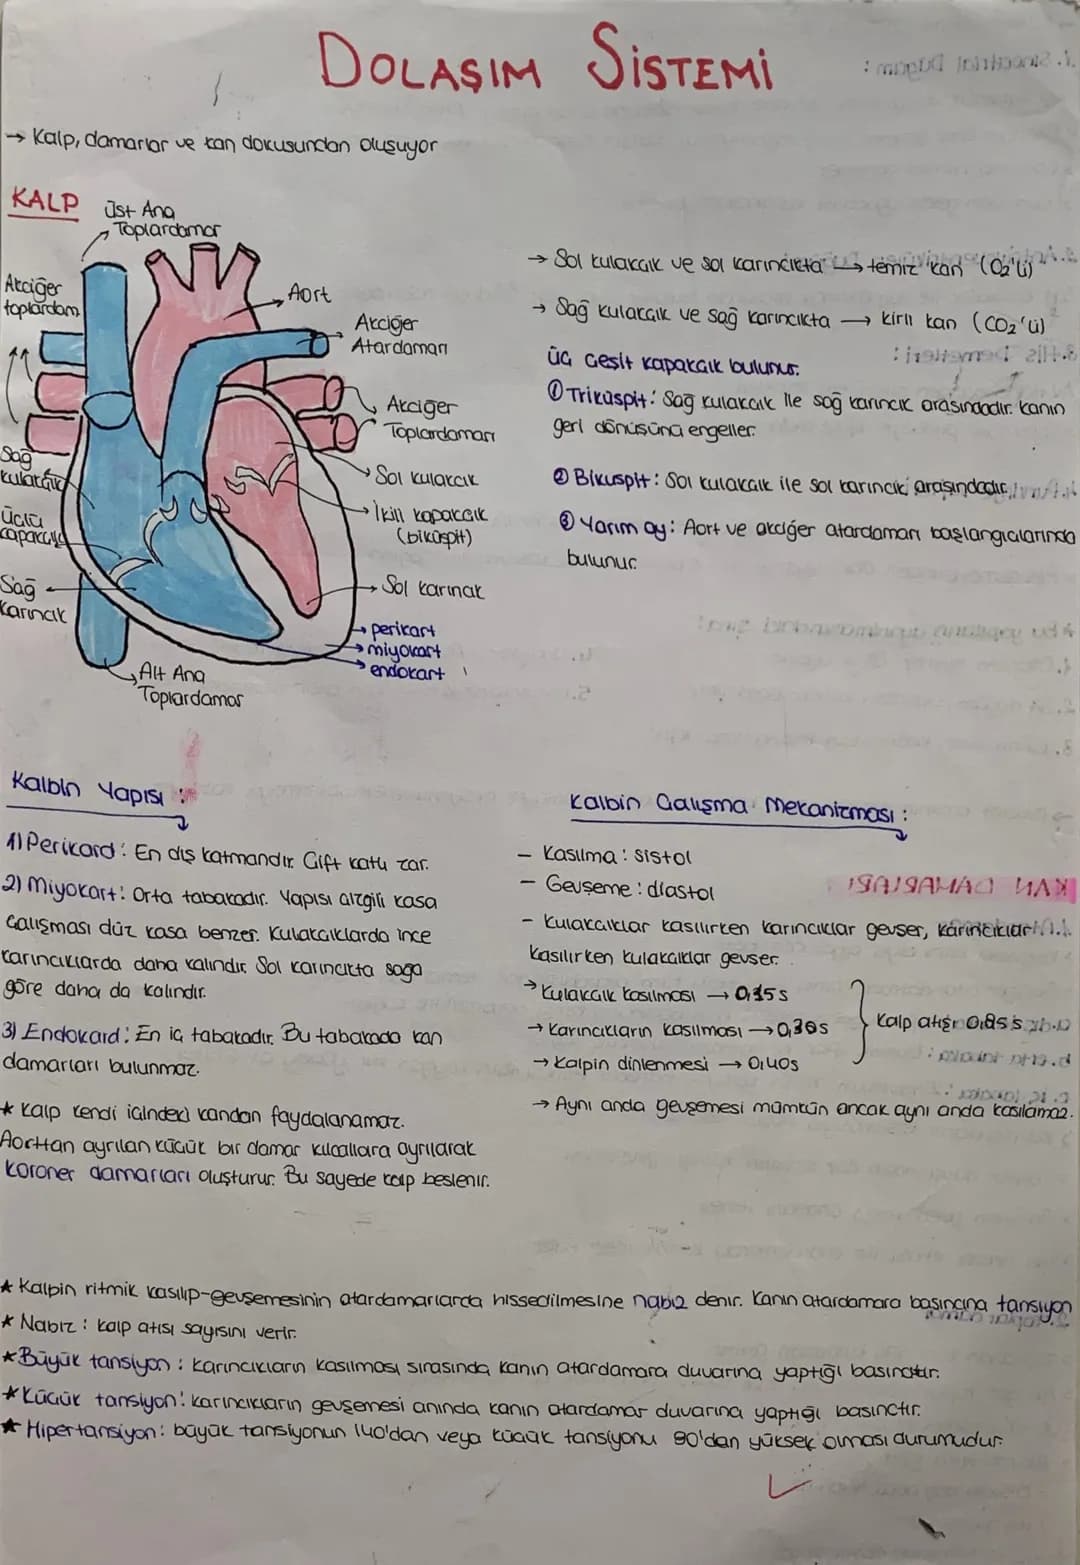 DOLAŞIM SİSTEMİ
→ Kalp, damarlar ve kan dokusundan oluşuyor
KALP
Üst Ana
Toplardamar
Akciğer
toplardam
Aort
Akciğer
Atardamarı
Akciğer
Toplardamarı
Sol kulakçık
İkili kapakçık
(biküspit)
Sol karıncık
perikart
miyokart
endokart
Sağ
kulakçık
Üçlü
kapakçık
Sağ
karıncık
Alt Ana
Toplardamar
→ Sol kulakçık ve sol karıncıkta → temiz kan (O₂'li)
→ Sağ kulakçık ve sağ karıncıkta → kirli kan (CO₂'li)
Üç çeşit kapakçık bulunur.
① Triküspit: Sağ kulakçık ile sağ karıncık arasındadır. Kanın
geri dönüşünü engeller.
② Biküspit: Sol kulakçık ile sol karıncık arasındadır.
③ Yarım ay: Aort ve akciğer atardamarı başlangıçlarında
bulunur.
Kalbin Yapısı :
1) Perikard: En dış katmandır. Çift katlı zar.
2) Miyokart: Orta tabakadır. Yapısı çizgili kasa
çalışması düz kasa benzer. Kulakçıklarda ince
karıncıklarda daha kalındır. Sol karıncıkta sağa
göre daha da kalındır.
3) Endokard: En iç tabakadır. Bu tabakada kan
damarları bulunmaz.
* Kalp kendi içindeki kandan faydalanamaz.
Aorttan ayrılan küçük bir damar kılcallara ayrılarak
koroner damarları oluşturur. Bu sayede kalp beslenir.
Kalbin Çalışma Mekanizması :
- Kasılma : sistol
- Gevşeme : diastol
- Kulakçıklar kasılırken karıncıklar gevşer, karıncıklar
kasılırken kulakçıklar gevşer.
→ Kulakçık kasılması → 0,15s
→ Karıncıkların kasılması → 0,30s
→ Kalpin dinlenmesi → 0,40s
Kalp atışı 0,85s
→ Aynı anda gevşemesi mümkün ancak aynı anda kasılamaz.
* Kalpin ritmik kasılıp-gevşemesinin atardamarlarda hissedilmesine nabız denir. Kanın atardamara basıncına tansiyon
* Nabız : kalp atışı sayısını verir.
* Büyük tansiyon : karıncıkların kasılması sırasında kanın atardamara duvarına yaptığı basınçtır.
* Küçük tansiyon: karıncıkların gevşemesi anında kanın atardamar duvarına yaptığı basınçtır.
* Hipertansiyon: büyük tansiyonun 140'dan veya küçük tansiyonu 90'dan yüksek olması durumudur.